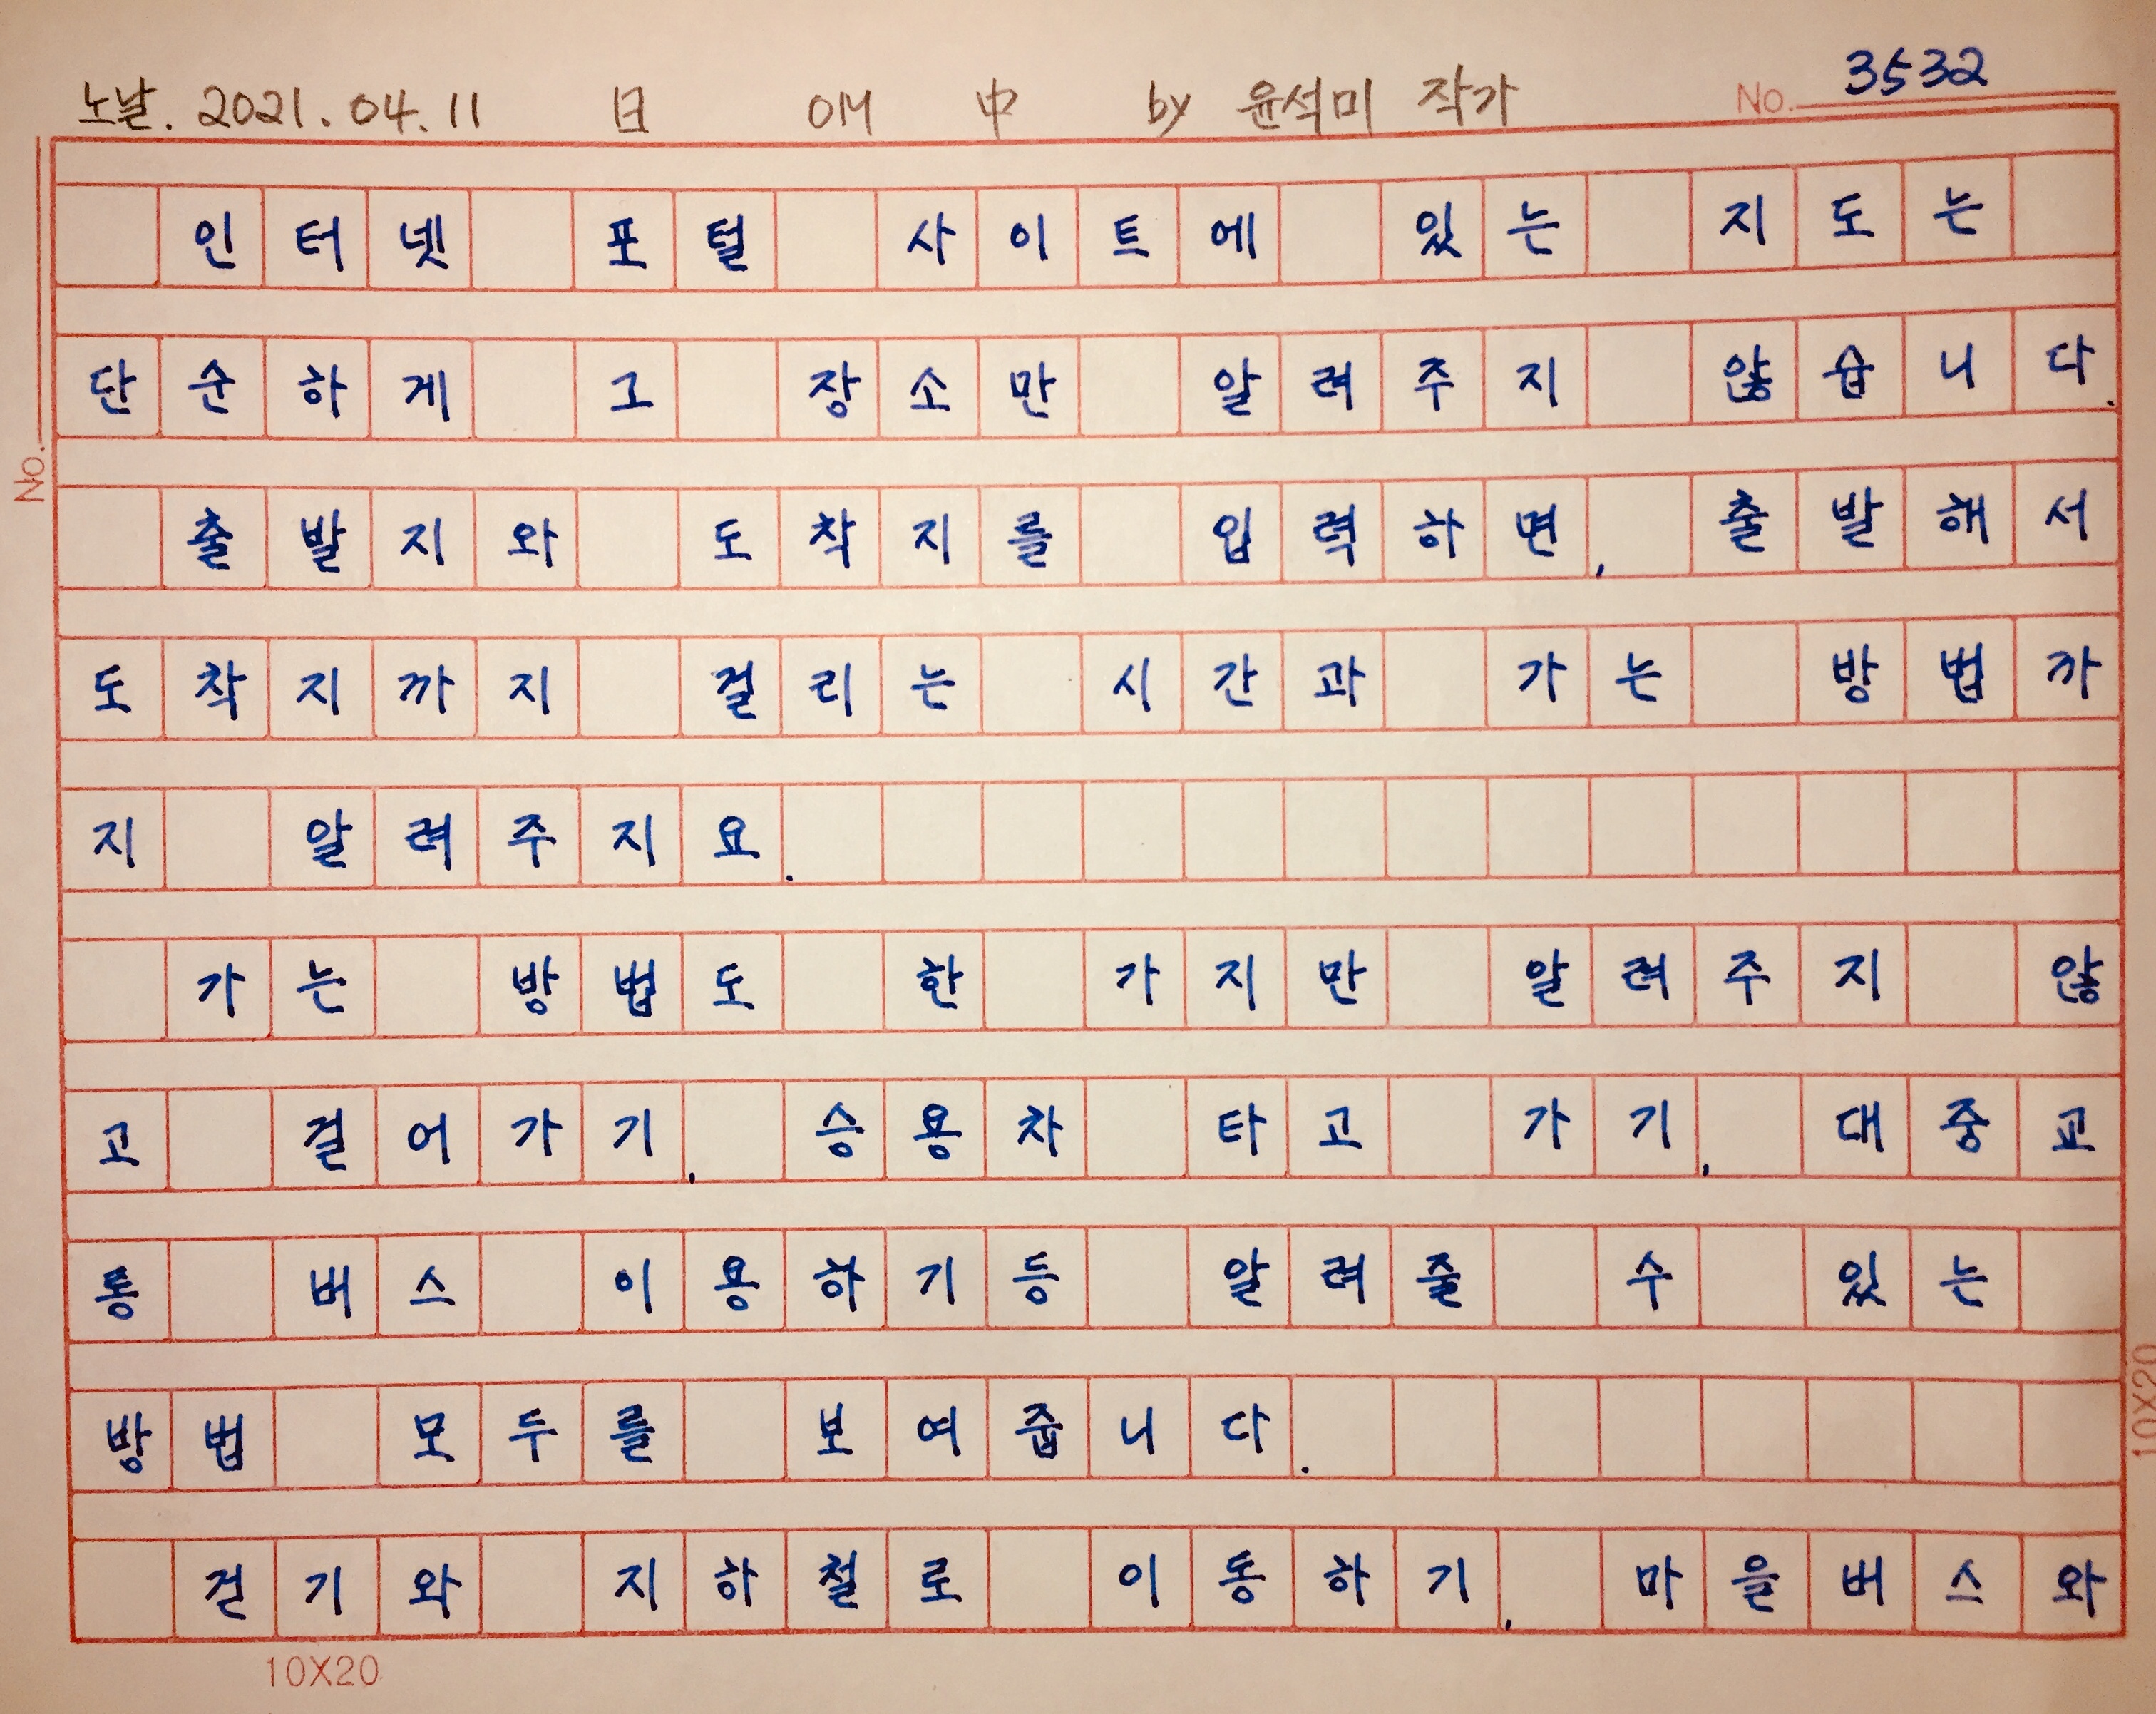 노날. 2021.04.11 日 OM 中 by 윤석미 작가 No. 3532
인터넷 포털 사이트에 있는 지도는
단순하게 그 장소만 알려주지 않습니다.
No.
출발지와 도착지를 입력하면, 출발해서
도착지까지 걸리는 시간과 가는 방법까
지 알려주지요.
가는 방법도 한 가지만 알려주지 않
고 걸어가기, 승용차 타고 가기, 대중교
통 버스 이용하기등 알려줄 수 있는
방법 모두를 보여줍니다.
10X20
걷기와 지하철로 이동하기, 마을버스와
10X20